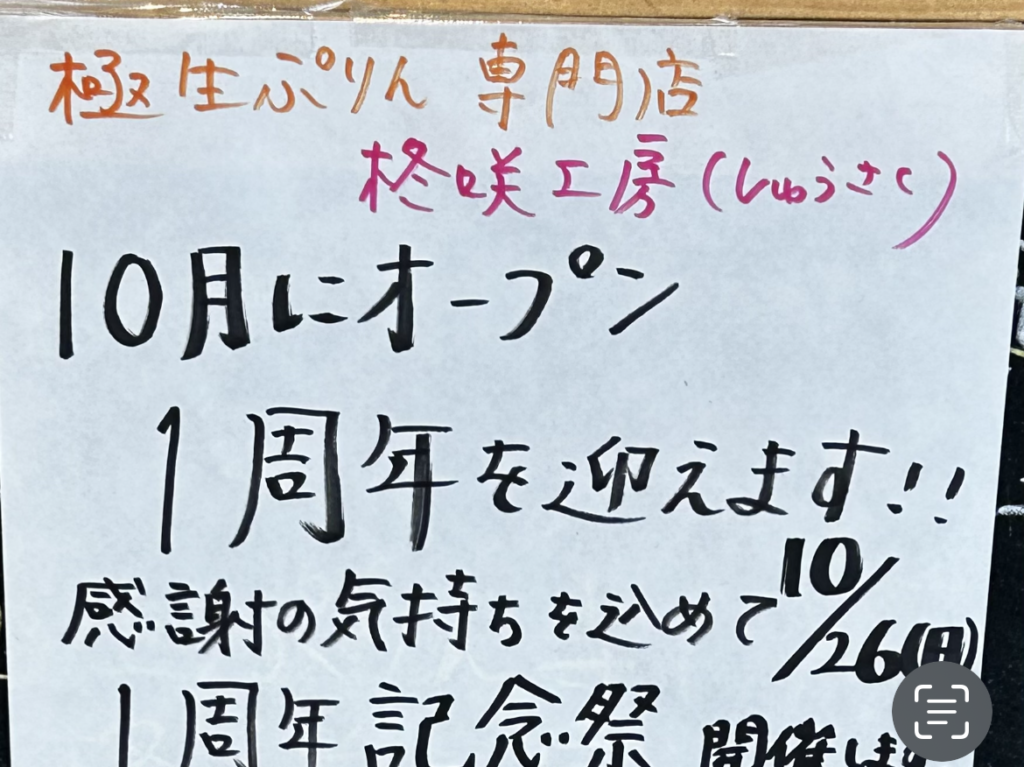 極生ぷりん 専門店
柊咲工房(しゅうさく)
10月にオープン
1周年を迎えます!!
感謝の気持ちを込めて10/26(日)
1周年記念祭 開催します